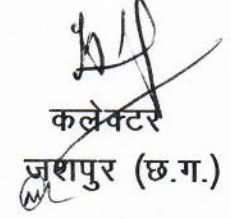 कलेक्टर
जशपुर (छ.ग.)